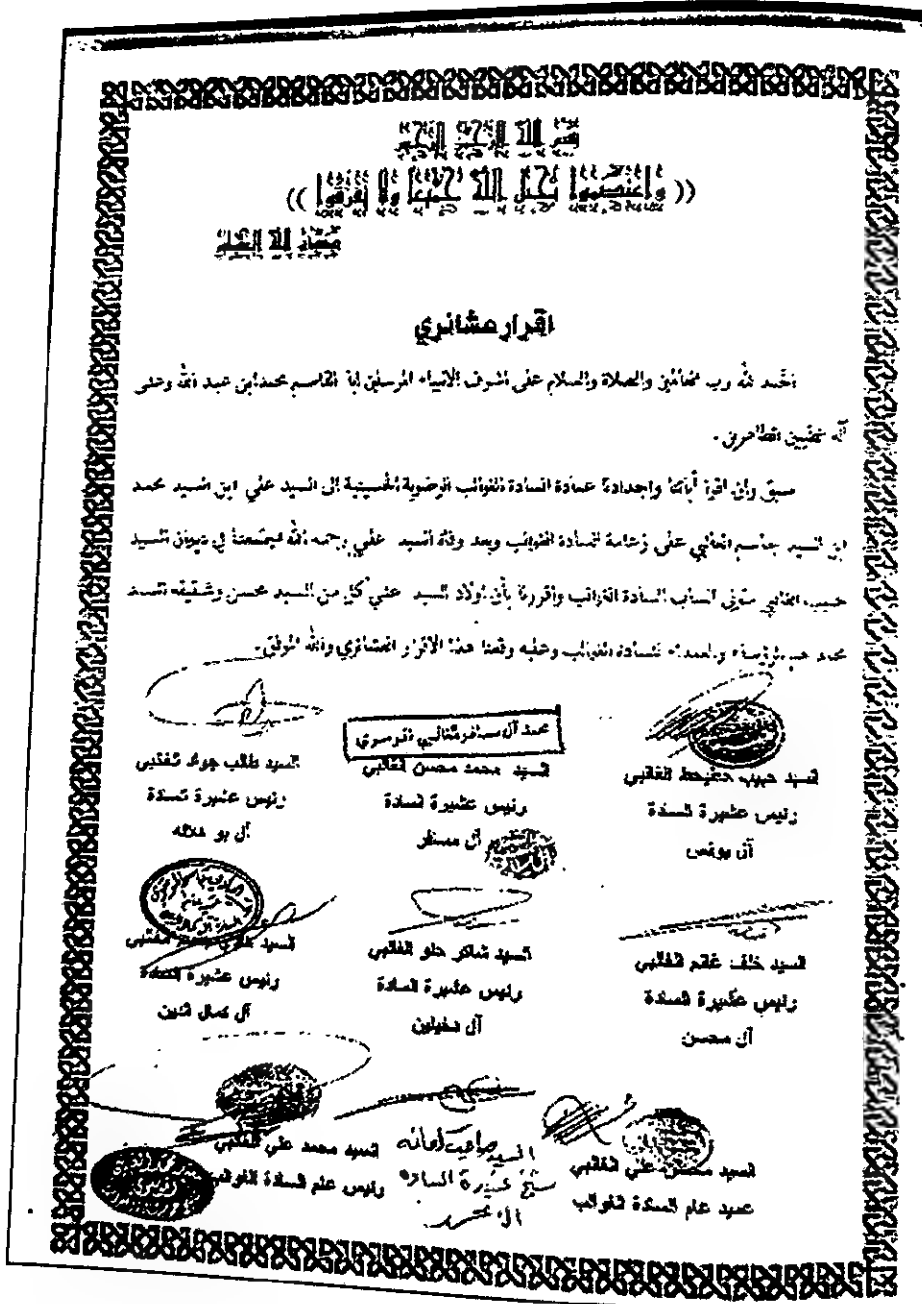 بسم الله الرحمن الرحيم
(( واعتصموا بحبل الله جميعا ولا تفرقوا ))
صدق الله العظيم
اقرار عشائري
الحمد لله رب العالمين والصلاة والسلام على اشرف الانبياء المرسلين ابا القاسم محمد ابن عبد الله وعلى
آله الطيبين الطاهرين .
سبق وان اقروا آبائنا واجدادنا عمادة السادة الغوالب الرضوية الحسينية إلى السيد علي ابن السيد محمد
ابن السيد جاسم الغالبي على زعامة السادة الغوالب وبعد وفاة السيد علي رحمه الله اجتمعنا في ديوان السيد
حبيب الغالبي متولي انساب السادة الغوالب وأقررنا بأن اولاد السيد علي كل من السيد محسن وشقيقه السيد
محمد هم والعمداء للسادة الغوالب وعليه وقعنا هذا الاقرار العشائري والله الموفق .
السيد حبيب الغالبي
رئيس عشيرة السادة
آل يونس
محمد آل الغالبي الموسوي
السيد محمد محسن الغالبي
رئيس عشيرة السادة
آل مسافر
السيد طالب جواد الغالبي
رئيس عشيرة السادة
آل بو
السيد خلف غانم الغالبي
رئيس عشيرة السادة
آل محسن
السيد شاكر حلو الغالبي
رئيس عشيرة السادة
آل
السيد الغالبي
رئيس عشيرة السادة
آل كمال الدين
السيد محسن علي الغالبي
عميد عام السادة الغوالب
السيد
شيخ عشيرة السادة
ال
السيد محمد علي الغالبي
رئيس عام السادة الغوالب